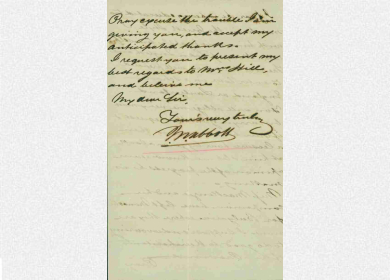 Pray excuse the trouble I am
giving you, and accept my
anticipated thanks.
I request you to present my
best regards to Mrs Hills,
and believe me
My dear Sir,
Yours very truly
Mabbott